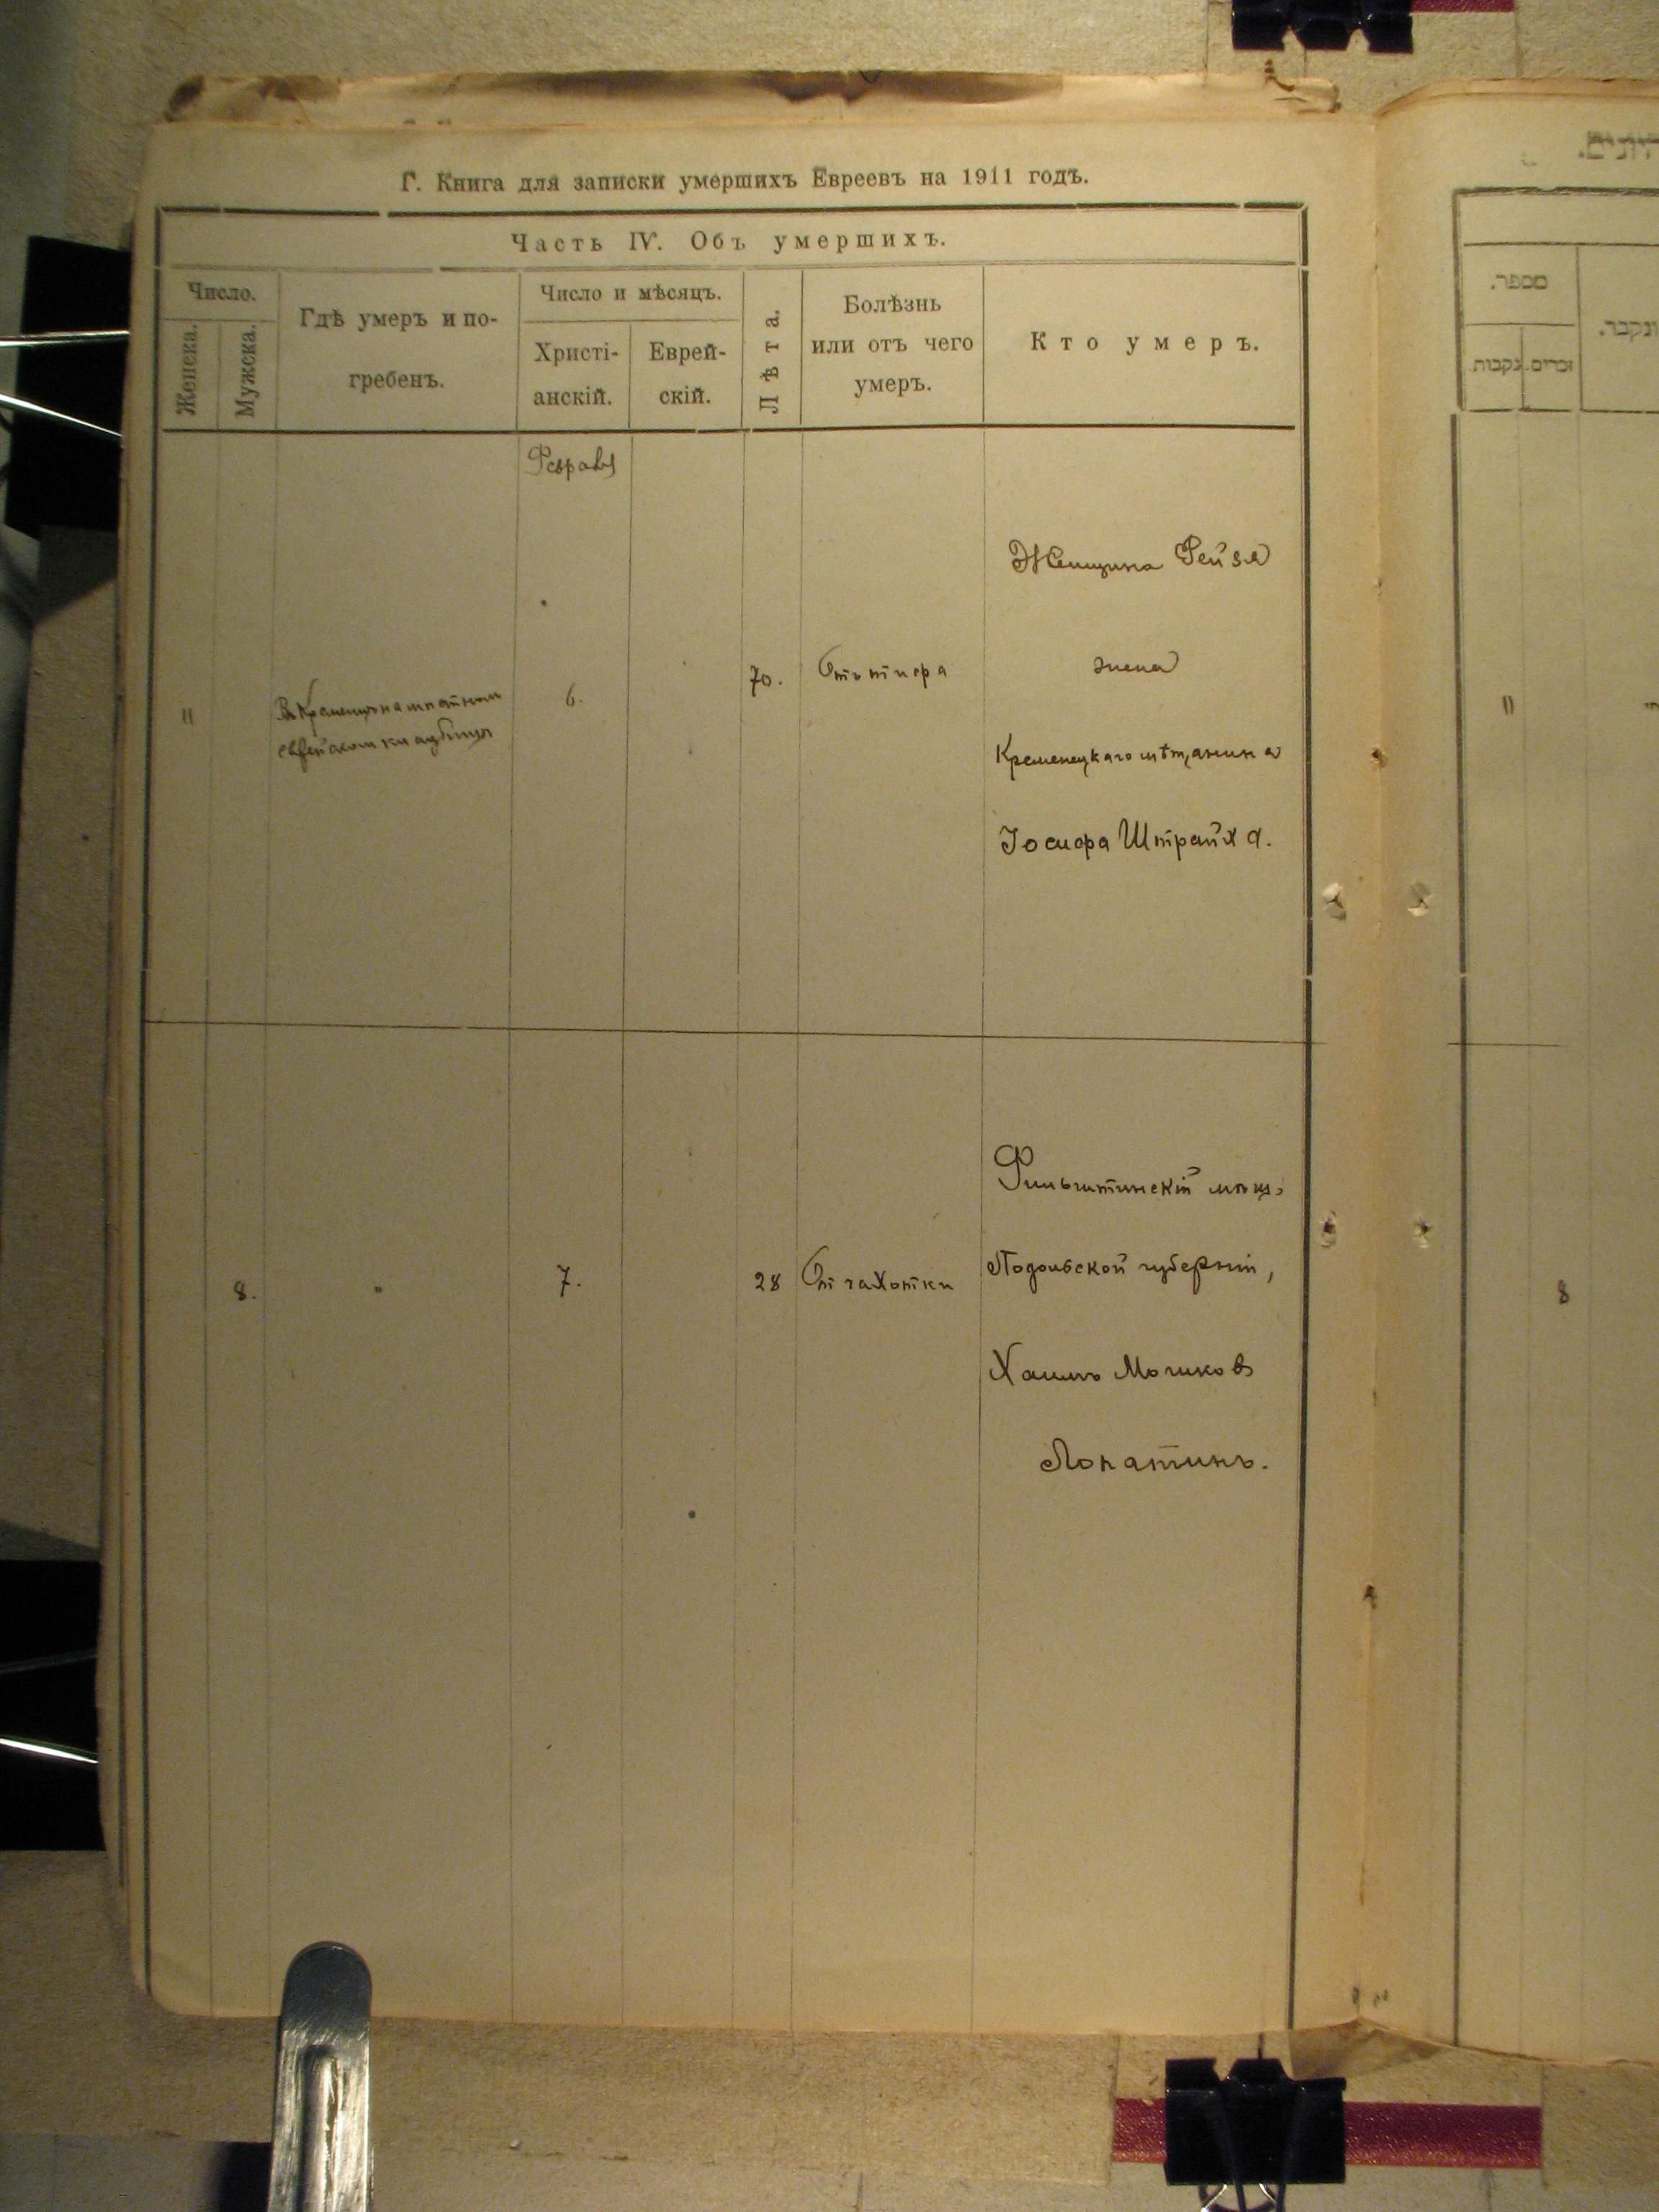 Г. Книга для записки умершихъ Евреевъ на 1911 годъ.
Часть IV. Объ умершихъ.
Число.
Женска.
Мужска.
Гдѣ умеръ и по-
гребенъ.
Число и мѣсяцъ.
Христі-
анскій.
Еврей-
скій.
Лѣта.
Болѣзнь
или отъ чего
умеръ.
Кто умеръ.
Феврал
11
6.
70.
Отъ тифа
Женщина Фейзя
жена
Кременецкаго мѣщанина
Іосифа Штрайха.
8.
"
7.
28
От чахотки
Фильштинскій мѣщ.
Подольской губерніи,
Хаимъ Мошков
Лопатинъ.
מספר.
נקבות.
זכרים.
ונקבר.
11
8